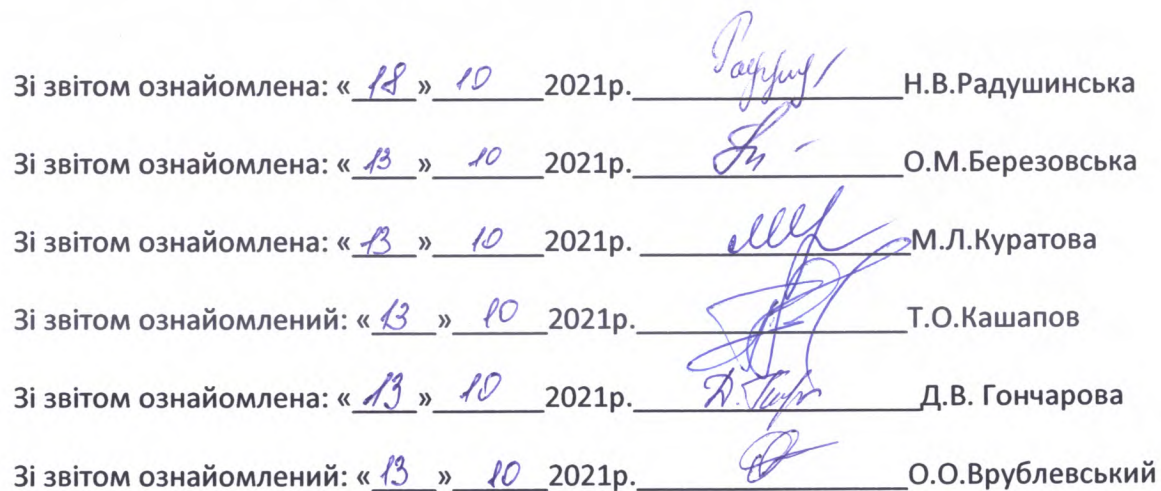 Зі звітом ознайомлена: «18» 10 2021р. Н.В.Радушинська
Зі звітом ознайомлена: «13» 10 2021р. О.М.Березовська
Зі звітом ознайомлена: «13» 10 2021р. М.Л.Куратова
Зі звітом ознайомлений: «13» 10 2021р. Т.О.Кашапов
Зі звітом ознайомлена: «13» 10 2021р. Д.В. Гончарова
Зі звітом ознайомлений: «13» 10 2021р. О.О.Врублевський